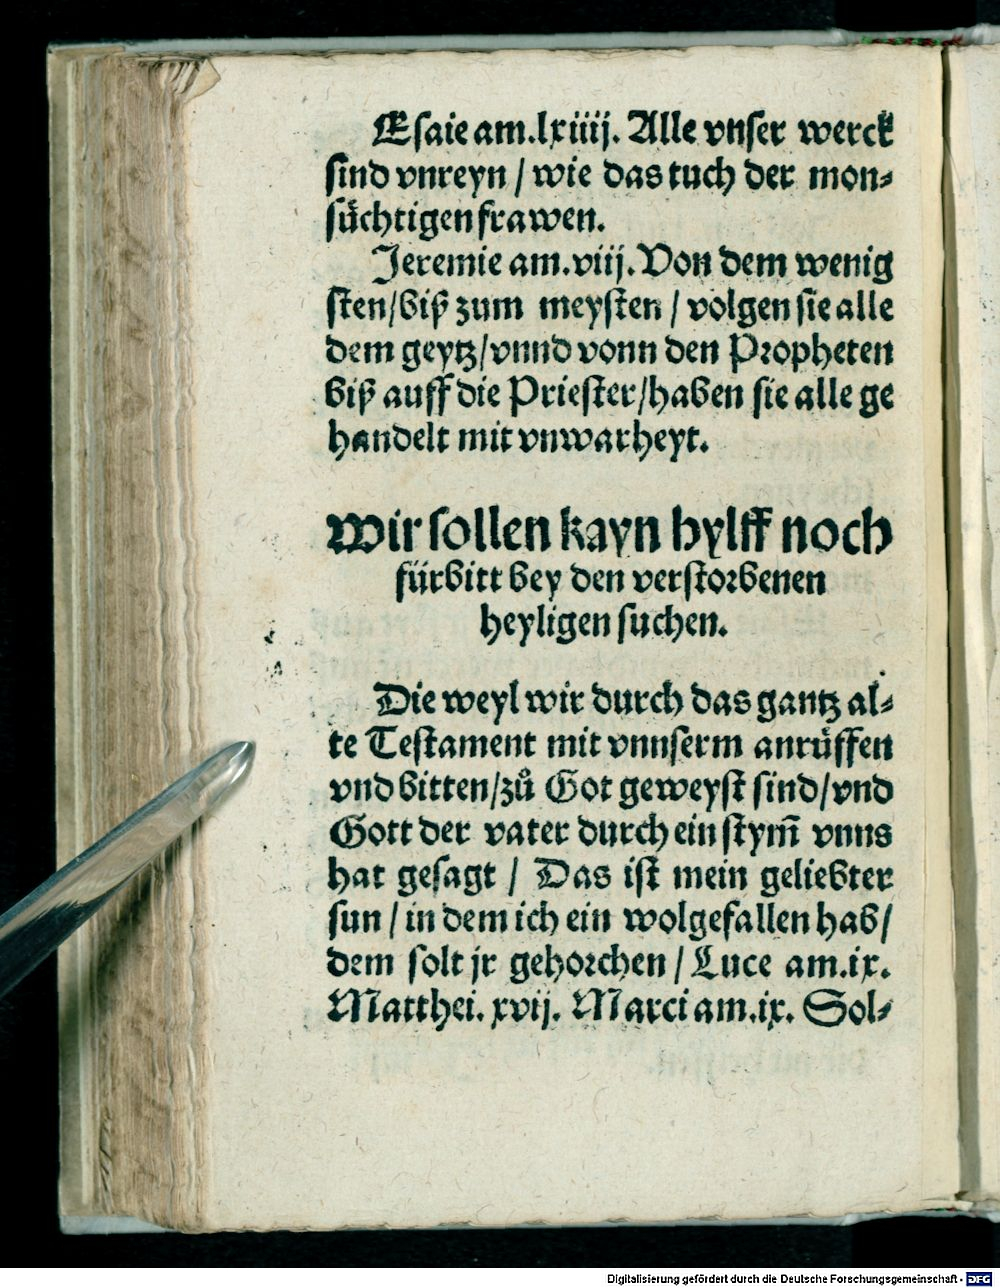 Esaie am.lxiiij. Alle vnser werck
sind vnreyn / wie das tuch der mon⸗
süchtigen frawen.
Jeremie am.viij. Von dem wenig
sten/biß zum meysten / volgen sie alle
dem geytz/vnnd vonn den Propheten
biß auff die Priester/haben sie alle ge
handelt mit vnwarheyt.
Wir sollen kayn hylff noch
fürbitt bey den verstorbenen
heyligen suchen.
Die weyl wir durch das gantz al⸗
te Testament mit vnnserm anrüffen
vnd bitten/zů Got geweyst sind/vnd
Gott der vater durch ein stym̃ vnns
hat gesagt / Das ist mein geliebter
sun / in dem ich ein wolgefallen hab/
dem solt jr gehorchen / Luce am.ix.
Matthei. xvij. Marci am.ix. Sol⸗
Digitalisierung gefördert durch die Deutsche Forschungsgemeinschaft - DFG